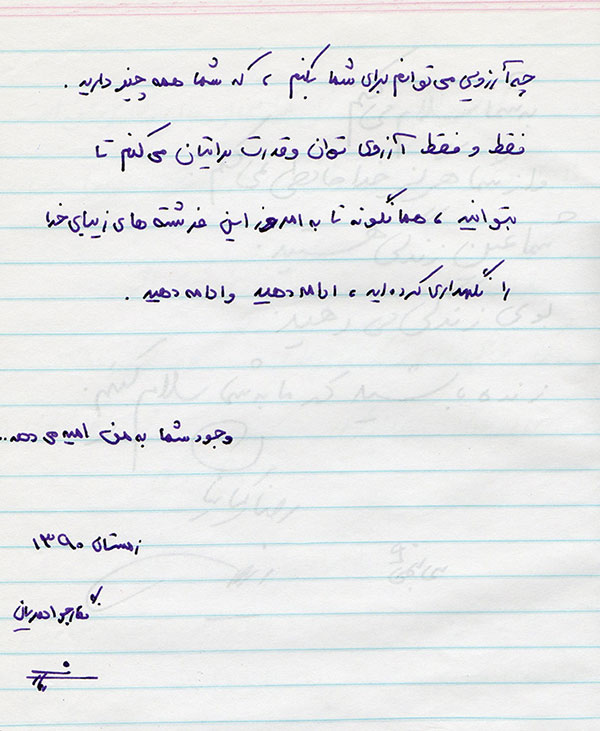 چه آرزویی می‌توانم برای شما بکنم ، که شما همه چیز دارید .
فقط و فقط آرزوی توان و قدرت برایتان می‌کنم تا
بتوانید ، همانگونه تا به امروز این فرشته های زیبای خدا
را نگهداری کرده‌اید ، ادامه دهید و ادامه دهید .
وجود شما به من امید می دهد..
زمستان ۱۳۹۰